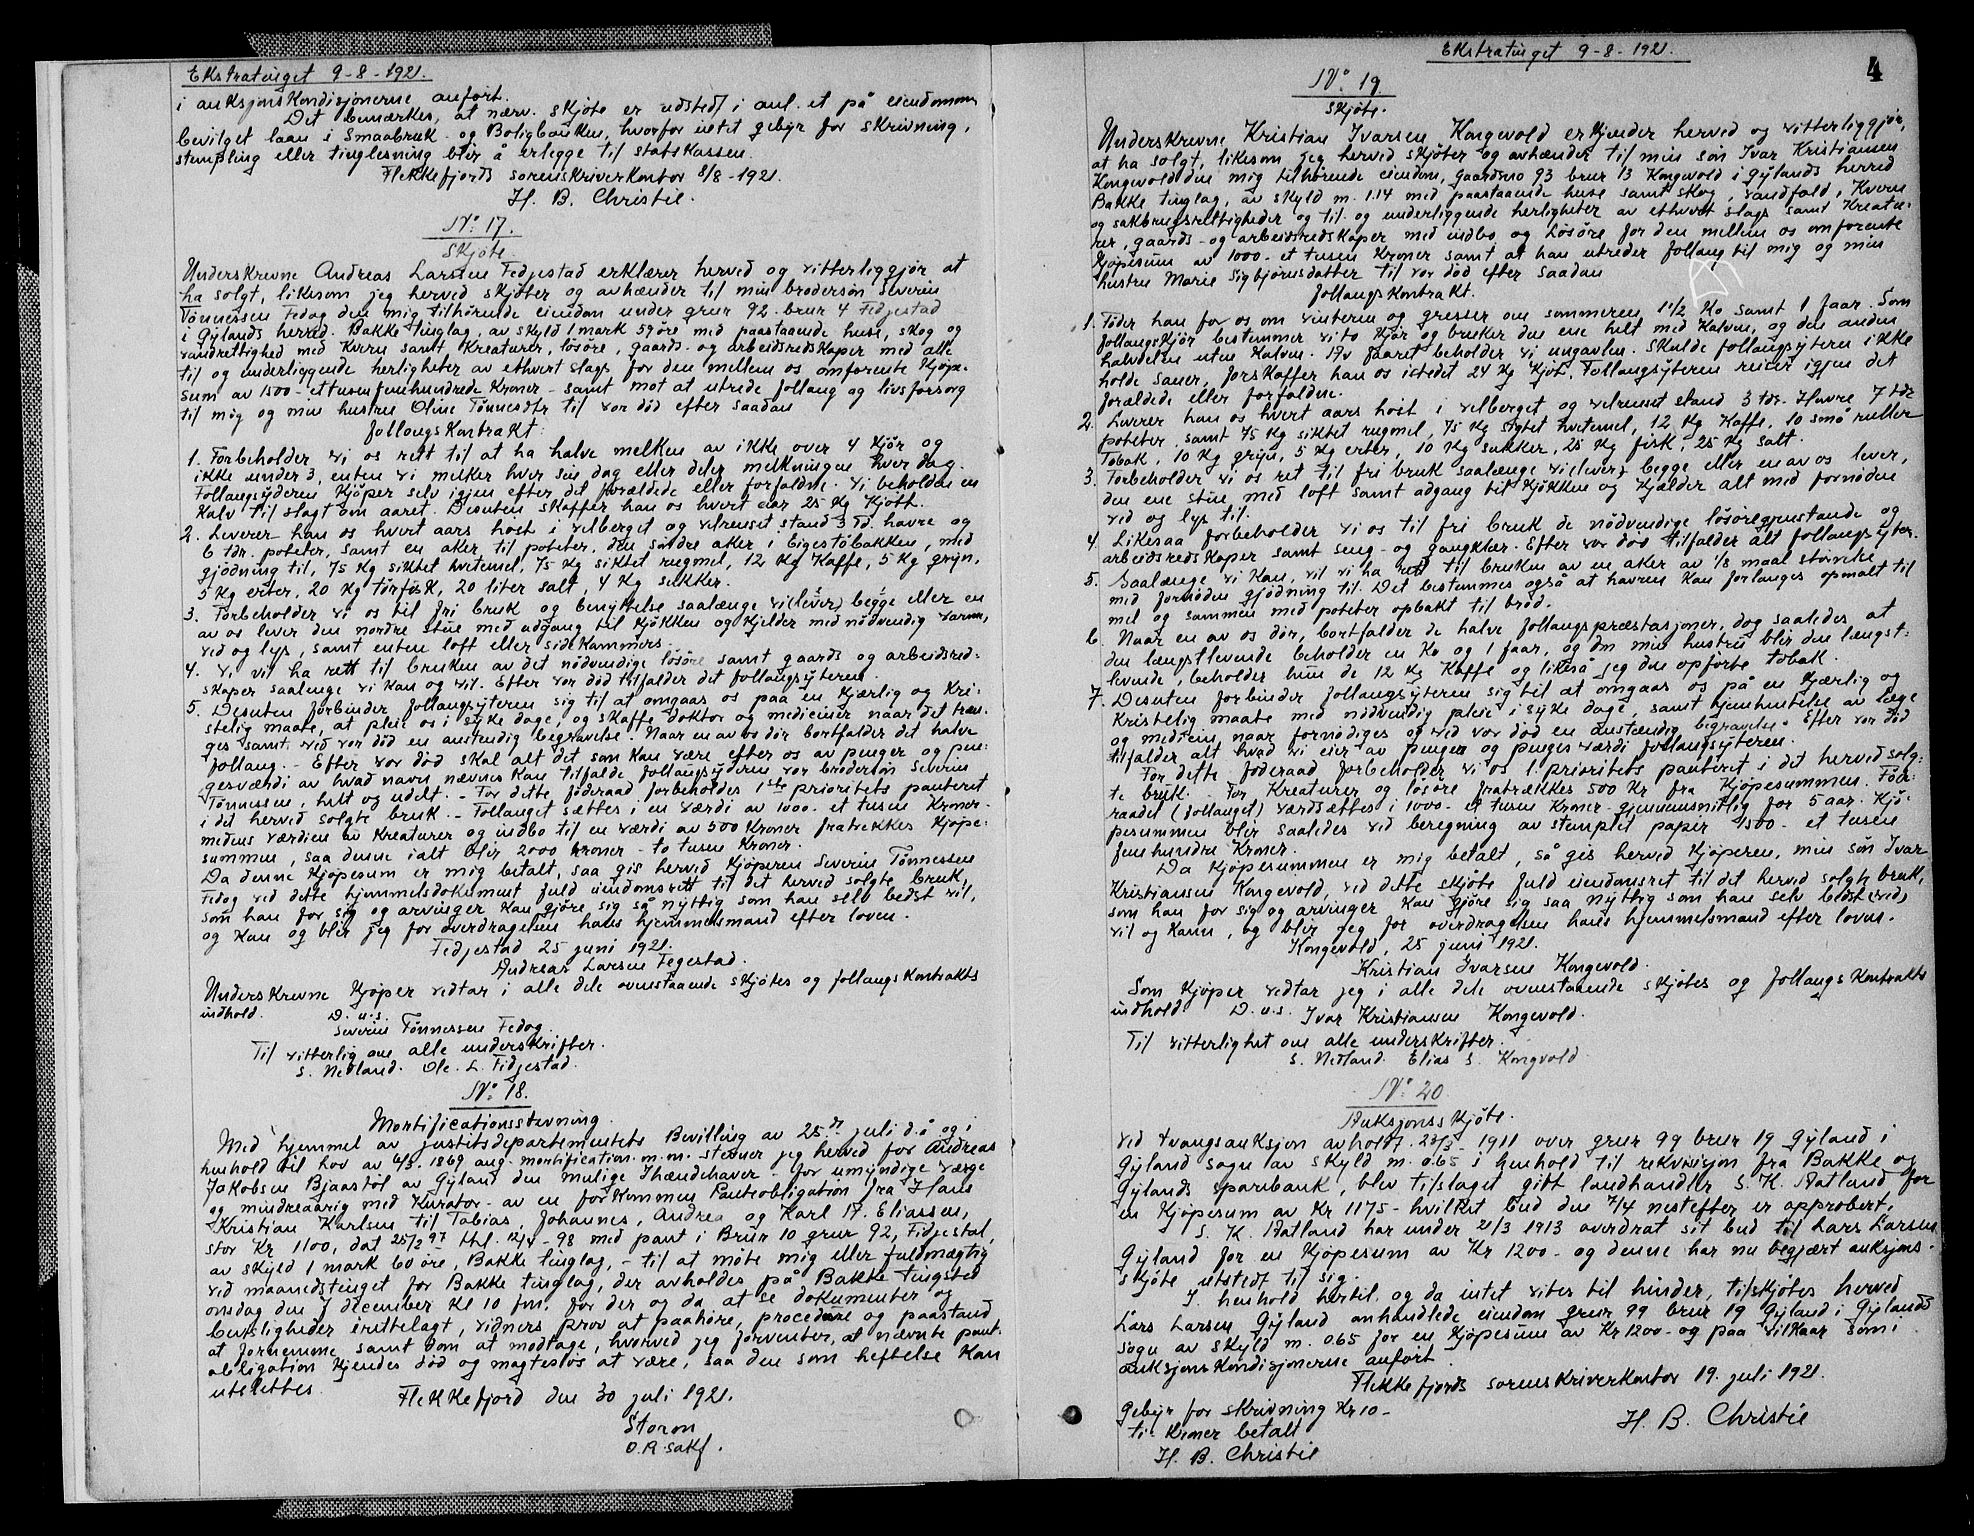 Ekstratinget 9-8-1921.
i auksjonskondisjonerne anført.
Det bemærkes, at nærv. skjøte er udstedt i anl. et på eiendommen
bevilget laan i Smaabruk- og Boligbanken, hvorfor intet gebyr for skrivning,
stempling eller tinglesning blir å erlegge til statskassen.
Flekkefjords sorenskriverkontor 8/8-1921.
H. B. Christie.
No. 17.
Skjøte
Underskrevne Andreas Larsen Fedjestad erklærer herved og vitterliggjør at
ha solgt, likesom jeg herved skjøter og avhænder til min brodersøn Severin
Tønnessen Fedog den mig tilhørende eiendom under gnr 92. bnr 4 Fedjestad
i Gylands herred. Bakke tinglag, av skyld 1 mark 59 øre med paastaaende huse, skog og
vandrettighed med kvern samt kreaturer, løsøre, gaards- og arbeidsredskaper med alle
til og underliggende herligheter av ethvert slags for den mellem os omforente kjøpe-
sum av 1500- ettusenfemhundrede kroner- samt mot at utrede follaug og livsforsorg
til mig og min hustru Oline Tønnesdtr til vor død efter saadan
follaugskontrakt:
1. Forbeholder vi os rett til at ha halve melken av ikke over 4 kjør og
ikke under 3, enten vi melker hver sin dag eller deler melkningen hver dag.
Follaugsyderen kjøper selv igjen efter det forældede eller forfaldne. Vi beholder en
kalv til slagt om aaret. Desuten skaffer han os hvert aar 25 kg kjøtt.
2. Leverer han os hvert aars høst i velberget og velrenset stand 3 td. havre og
6 tdr. poteter, samt en aker til poteter, den søndre aker i Eigestøbakken, med
gjødning til, 75 kg siktet hvetemel, 75 kg siktet rugmel, 12 kg kaffe, 5 kg gryn,
5 kg erter, 20 kg tørfisk, 20 liter salt, 4 kg sukker.
3. Forbeholder vi os til fri bruk og benyttelse saalænge vi (lever) begge eller en
av os lever den nordre stue med adgang til kjøkken og kjelder med nødvendig varme,
ved og lys, samt enten loft eller sidekammers
4. Vi vil ha rett til bruken av det nødvendige løsøre samt gaards og arbeidsred-
skaper saalenge vi kan og vil. Efter vor død tilfalder det follaugsyteren.
5. Desuten forbinder follaugsyteren sig til at omgaas os paa en kjærlig og kri-
stelig maate, at pleie os i syke dage, og skaffe doktor og mediciner naar det træn-
ges samt ved vor død en anstendig begravelse. Naar en av os dør bortfalder det halve
follaug. - Efter vor død skal alt det som kan være efter os av penger og pen-
gesværdi av hvad navn nævnes kan tilfalde follaugsyderen vor brodersøn Severin
Tønnessen, helt og udelt. - For dette føderaad forbeholdes 1ste prioritets panteret
i det herved solgte bruk. - Follauget sættes i en værdi av 1000- et tusen kroner-
medens værdien av kreaturer og indbo til en værdi av 500 kroner fratrekkes kjøpe-
summen, saa denne ialt blir 2000 kroner - to tusen kroner.
Da denne kjøpesum er mig betalt, saa gis herved kjøperen Severin Tønnessen
Fedog ved dette hjemmelsdokument fuld eiendomsrett til det herved solgte bruk,
som han for sig og arvinger kan gjøre sig så nyttig som han selv bedst vil,
og kan og blir jeg for overdragelsen hans hjemmelsmand efter loven.
Fedjestad 25 juni 1921.
Andreas Larsen Fegestad.
Underskrevne kjøper vedtar i alle dele ovenstaaende skjøtes og follaugskontrakts
indhold. D. u. s.
Severin Tønnessen Fedog.
Til vitterlig om alle underskrifter.
S. Nedland. Ole. L. Fidjestad.
No. 18.
Mortificationsstevning.
Med hjemmel av justitsdepartementets Bevilling av 25de juli d.å og i
henhold til lov av 6/3. 1869 ang. mortification. m.m. stevner jeg herved for Andreas
Jakobsen Bjaastøl av Gyland den mulige Ihændehaver - for umyndige værge
og mindreaarig med kurator- av en forkommen Panteobligation fra Hans
Kristian Karlsen til Tobias, Johannes, Andrea og Karl A. Eliassen,
stor Kr 1100, dat 25/2 97 thl. 12/4-98 med pant i Bnr 10 gnr 92, Fidjestal,
av skyld 1 mark 60 øre, Bakke tinglag, - til at møte mig eller fuldmægtig
ved maanedstinget for Bakke tinglag, der avholdes på Bakke tingsted
onsdag den 7 december kl 10 fm. for der og da at se dokumenter og
bevisligheder irettelagt, vidners prov at paahøre, procedure og paastand
at fornemme samt dom at modtage, hvorved jeg forventer, at nævnte pant-
obligation kjendes død og magtesløs at være, saa den som heftelse kan
utslettes.
Flekkefjord den 30 juli 1921.
Storm
O.R.sakf.
Ekstratinget 9-8-1921.
4
No. 19.
Skjøte.
Underskrevne Kristian Ivarsen Kongevold erkjender herved og vitterliggjør,
at ha solgt, likesom jeg herved skjøter og avhænder til min søn Ivar Kristiansen
Kongevold den mig tilhørende eiendom, gaardsno 93 bnr 13 Kongevold i Gylands herred
Bakke tinglag, av skyld m. 1.14 med paastaaende huse samt skog, vandfald, kvern
og sakbrugsrettigheder og til- og underliggende herligheter av ethvert slags samt kreatu-
rer, gaards- og arbeidsredskaper med indbo og løsøre for den mellem os omforente
kjøpesum av 1000- et tusen kroner samt at han utreder follaug til mig og min
hustru Marie Sigbjørnsdatter til vor død efter saadan
follaugskontrakt.
1. Føder han for os om vinteren og gresser om sommeren 1 1/2 ko samt 1 faar. Som
follaugskjør bestemmer vi to kjør og bruker den ene helt med kalven, og den anden
halvdelen uten kalven. Av faaret beholder vi ungavlen. Skulde follaugsyteren ikke
holde sauer, forskaffer han os istedet 24 kg kjøt. Follaugsyteren reiser igjen det
forældede eller forfaldne.
2. Leverer han os hvert aars høst i velberget og velrenset stand 3 tdr. havre 7 tdr
poteter, samt 75 kg siktet rugmel, 75 kg sigtet hvetemel, 12 kg kaffe, 10 små ruller
Tobak, 10 kg gryn, 5 kg erter, 10 kg sukker, 25 kg fisk, 25 kg salt.
3. Forbeholder vi os ret til fri bruk saalænge vi (lever) begge eller en av os lever,
den ene stue med loft samt adgang til kjøkken og kjælder alt med fornøden
ved og lys til.
4. Likesaa forbeholder vi os til fri bruk de nødvendige løsøregjenstande og
arbeidsredskaper samt seng- og gangklær. Efter vor død tilfalder alt follaugsyter.
5. Saalænge vi kan, vil vi ha rett til bruken av en aker av 1/8 maal størrelse
med fornøden gjødning til. Det bestemmes også at havren kan forlanges opmalt til
mel og sammen med poteter opbakt til brød.
6. Naar en av os dør, bortfalder de halve follaugspræstasjoner, dog saaledes at
den længstlevende beholder en ko og 1 faar, og om min hustru blir den længst-
levende, beholder hun de 12 kg kaffe og likeså jeg den opførte tobak.
7. Desuten forbinder follaugsyteren sig til at omgaas os på en kjærlig og
kristelig maate med nødvendig pleie i syke dage, samt hjemhentelse av læge
og medicin naar fornødiges og ved vor død en anstændig begravelse. Efter vor død
tilfalder alt hvad vi eier av penger og penges værdi follaugsyteren.
For dette føderaad forbeholder vi os 1. prioritets panteret i det herved solg-
te bruk. - For kreaturer og løsøre fratrækkes 500 kr fra kjøpesummen. Føde-
raadet (follauget) værdsættes i 1000- et tusen kroner- gjennemsnitlig for 5 aar. Kjø-
pesummen blir saaledes ved beregning av stemplet papir 1500- et tusen
femhundre kroner.
Da kjøpesummen er mig betalt, så gis herved kjøperen, min søn Ivar
Kristiansen Kongevold, ved dette skjøte fuld eiendomsret til det herved solgte bruk,
som han for sig og arvinger kan gjøre sig saa nyttig som han selv bedst (ved)
vil og kann, og blir jeg for overdragelsen hans hjemmelsmand efter loven.
Kongevold, 25 juni 1921.
Kristian Ivarsen Kongevold.
Som kjøper vedtar jeg i alle dele ovenstaaende skjøtes og follaugskontrakts
indhold D. u. s. Ivar Kristiansen Kongevold.
Til vitterlighet om alle underskrifter.
S. Nedland. Elias S. Kongvold
No. 20.
Auksjonsskjøte.
Ved tvangsauksjon avholdt 23/3 1911 over gnr 99 bnr 19 Gyland i
Gyland sogn av skyld m. 0.65 i henhold til rekvisisjon fra Bakke og
Gylands sparebank, blev tilslaget gitt landhandler S. K. Aatland for
en kjøpesum av kr 1175- hvilket bud den 7/4 nestefter er approbert.
S. K. Aatland har under 21/3 1913 overdrat sit bud til Lars Larsen
Gyland for en kjøpesum av Kr 1200- og denne har nu begjært auksjons-
skjøte utstedt til sig.
I henhold hertil og da intet vites til hinder, tilskjøtes herved
Lars Larsen Gyland omhandlede eiendom gnr 99 bnr 19 Gyland i Gylands
sogn av skyld m. 0.65 for en kjøpesum av Kr 1200- og paa vilkaar som i
auksjonskondisjonerne anført.
Flekkefjords sorenskriverkontor 19. juli 1921.
Gebyr for skrivning Kr 10-
ti- kroner betalt
H. B. Christie
H. B. Christie